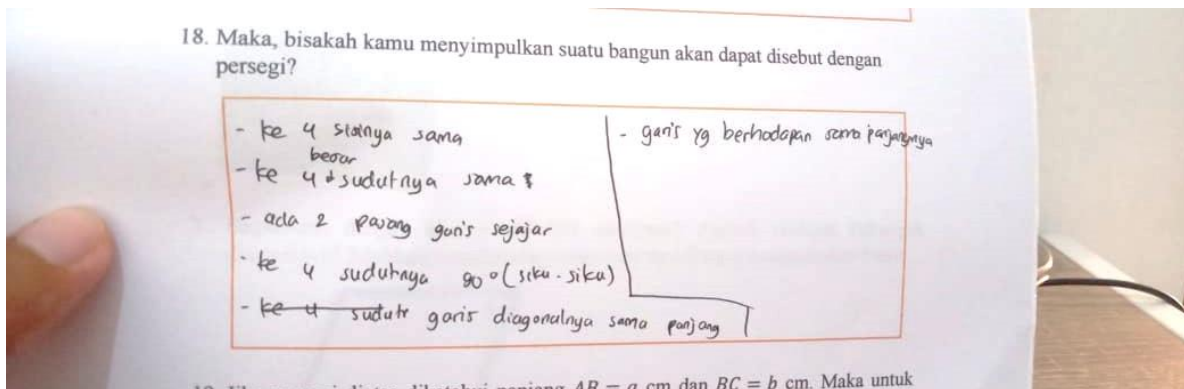 18. Maka, bisakah kamu menyimpulkan suatu bangun akan dapat disebut dengan
persegi?
- ke 4 sisinya sama
- ke 4 besar sudutnya sama
- ada 2 pasang garis sejajar
- ke 4 sudutnya 90° (siku-siku)
- ke 4 sudut garis diagonalnya sama panjang
- garis yg berhadapan sama panjangnya
AB = a cm dan BC = b cm. Maka untuk